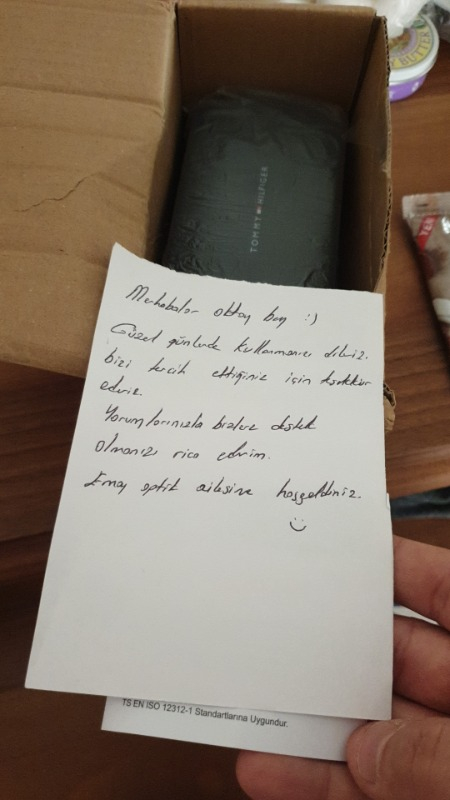 BUTTER
TOMMY HILFIGER
Merhabalar oktay bey :)
Güzel günlerde kullanmanızı dileriz.
bizi tercih ettiğiniz için teşekkür
ederiz.
Yorumlarınızla bizlere destek
olmanızı rica ederim.
optik ailesine hoşgeldiniz.
TS EN ISO 12312-1 Standartlarına Uygundur.